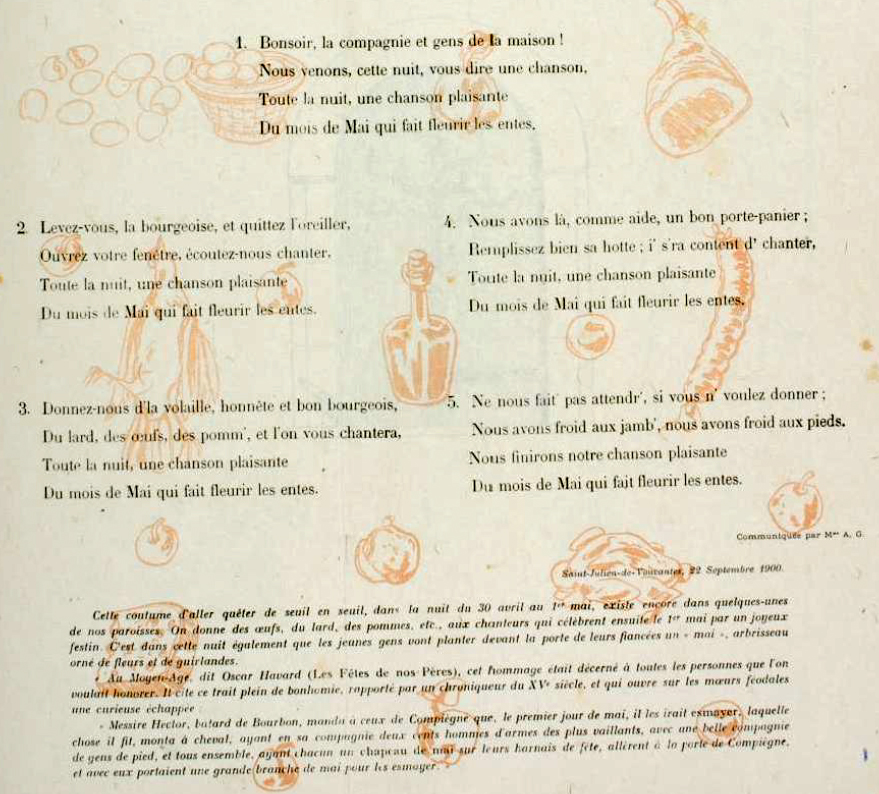 1. Bonsoir, la compagnie et gens de la maison !
Nous venons, cette nuit, vous dire une chanson,
Toute la nuit, une chanson plaisante
Du mois de Mai qui fait fleurir les entes.
2. Levez-vous, la bourgeoise, et quittez l'oreiller,
Ouvrez votre fenêtre, écoutez-nous chanter,
Toute la nuit, une chanson plaisante
Du mois de Mai qui fait fleurir les entes.
3. Donnez-nous d'la volaille, honnête et bon bourgeois,
Du lard, des œufs, des pomm', et l'on vous chantera,
Toute la nuit, une chanson plaisante
Du mois de Mai qui fait fleurir les entes.
4. Nous avons là, comme aide, un bon porte-panier ;
Remplissez bien sa hotte ; i' s'ra content d' chanter,
Toute la nuit, une chanson plaisante
Du mois de Mai qui fait fleurir les entes.
5. Ne nous fait' pas attendr', si vous n' voulez donner ;
Nous avons froid aux jamb', nous avons froid aux pieds.
Nous finirons notre chanson plaisante
Du mois de Mai qui fait fleurir les entes.
Communiquée par Mme A. G.
Saint-Julien-de-Vouvantes, 22 Septembre 1900.
Cette coutume d'aller quêter de seuil en seuil, dans la nuit du 30 avril au 1er mai, existe encore dans quelques-unes
de nos paroisses. On donne des œufs, du lard, des pommes, etc., aux chanteurs qui célèbrent ensuite le 1er mai par un joyeux
festin. C'est dans cette nuit également que les jeunes gens vont planter devant la porte de leurs fiancées un « mai », arbrisseau
orné de fleurs et de guirlandes.
« Au Moyen-Age, dit Oscar Havard (Les Fêtes de nos Pères), cet hommage était décerné à toutes les personnes que l'on
voulait honorer. Il cite ce trait plein de bonhomie, rapporté par un chroniqueur du XVe siècle, et qui ouvre sur les mœurs féodales
une curieuse échappée :
« Messire Hector, batard de Bourbon, manda à ceux de Compiègne que, le premier jour de mai, il les irait esmayer, laquelle
chose il fit, monta à cheval, ayant en sa compagnie deux cents hommes d'armes des plus vaillants, avec une belle compagnie
de gens de pied, et tous ensemble, ayant chacun un chapeau de mai sur leurs harnais de fête, allèrent à la porte de Compiègne,
et avec eux portaient une grande branche de mai pour les esmayer. »